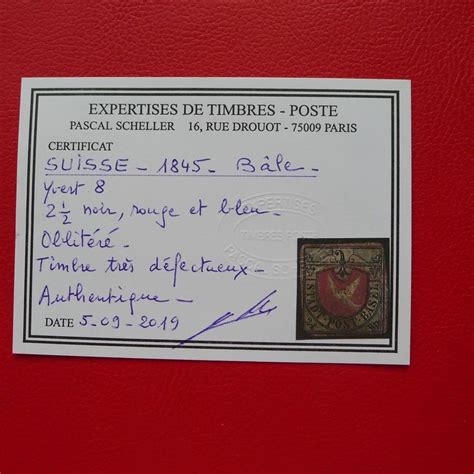 EXPERTISES DE TIMBRES - POSTE
PASCAL SCHELLER 16, RUE DROUOT - 75009 PARIS
CERTIFICAT
SUISSE - 1845 - Bâle -
Yvert 8
2 1/2 noir, rouge et bleu -
Oblitéré -
Timbre très défectueux -
Authentique -
DATE 5-09-2019
EXPERTISES
TIMBRES POSTE
PASCAL SCHELLER
STADT-POST-BASEL